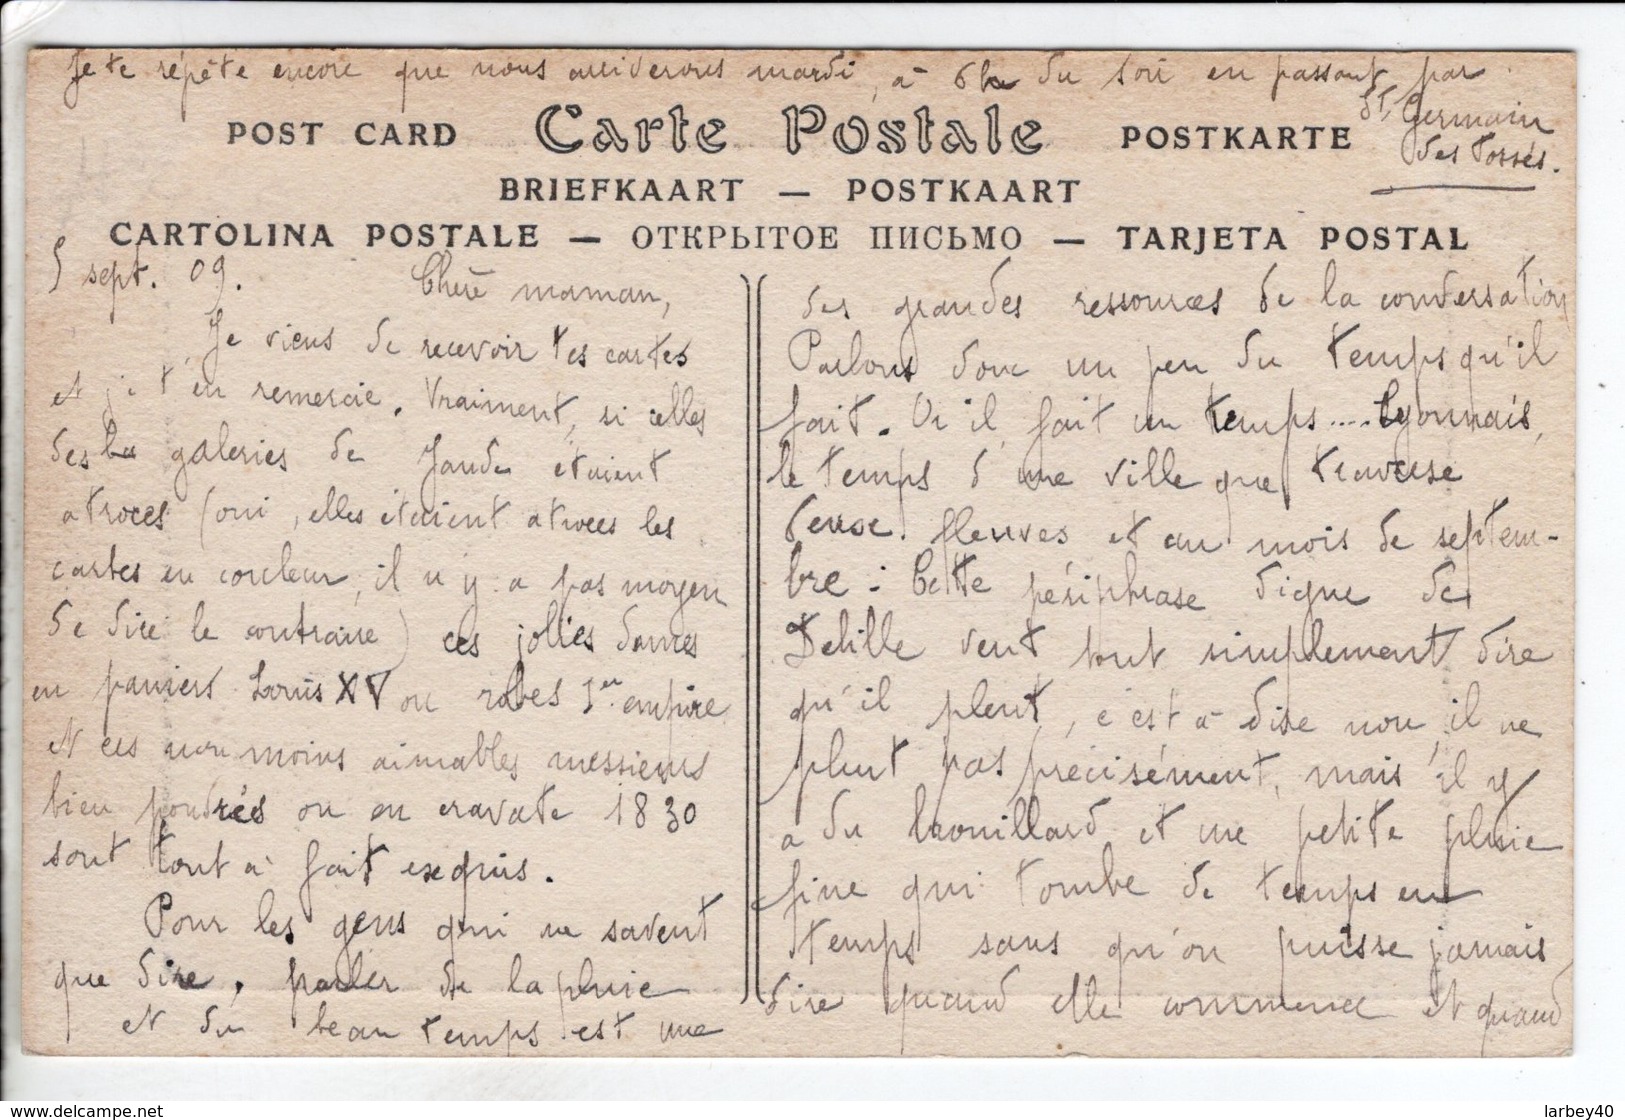 Je te répète encore que nous arriverons mardi, à 6h du soir en passant par
St Germain
des Fossés.
POST CARD Carte Postale POSTKARTE
BRIEFKAART — POSTKAART
CARTOLINA POSTALE — ОТКРЫТОЕ ПИСЬМО — TARJETA POSTAL
5 sept. 09. Chère maman,
Je viens de recevoir tes cartes
et je t'en remercie. Vraiment, si celles
des galeries de Jaude étaient
atroces (oui, elles étaient atroces les
cartes en couleur, il n'y a pas moyen
de dire le contraire) ces jolies dames
en paniers Louis XV ou robes 1er empire
et ces non moins aimables messieurs
bien poudrés ou en cravate 1830
sont tout à fait exquis.
Pour les gens qui ne savent
que dire, parler de la pluie
et du beau temps est une
des grandes ressources de la conversation
Parlons donc un peu du temps qu'il
fait. Or il fait un temps.... Lyonnais,
le temps d'une ville que traverse
deux fleuves et au mois de septem-
bre : Cette périphrase digne de
Delille veut tout simplement dire
qu'il pleut, c'est à dire non, il ne
pleut pas précisément, mais il y
a du brouillard et une petite pluie
fine qui tombe de temps en
temps sans qu'on puisse jamais
dire quand elle commence et quand
larbey40